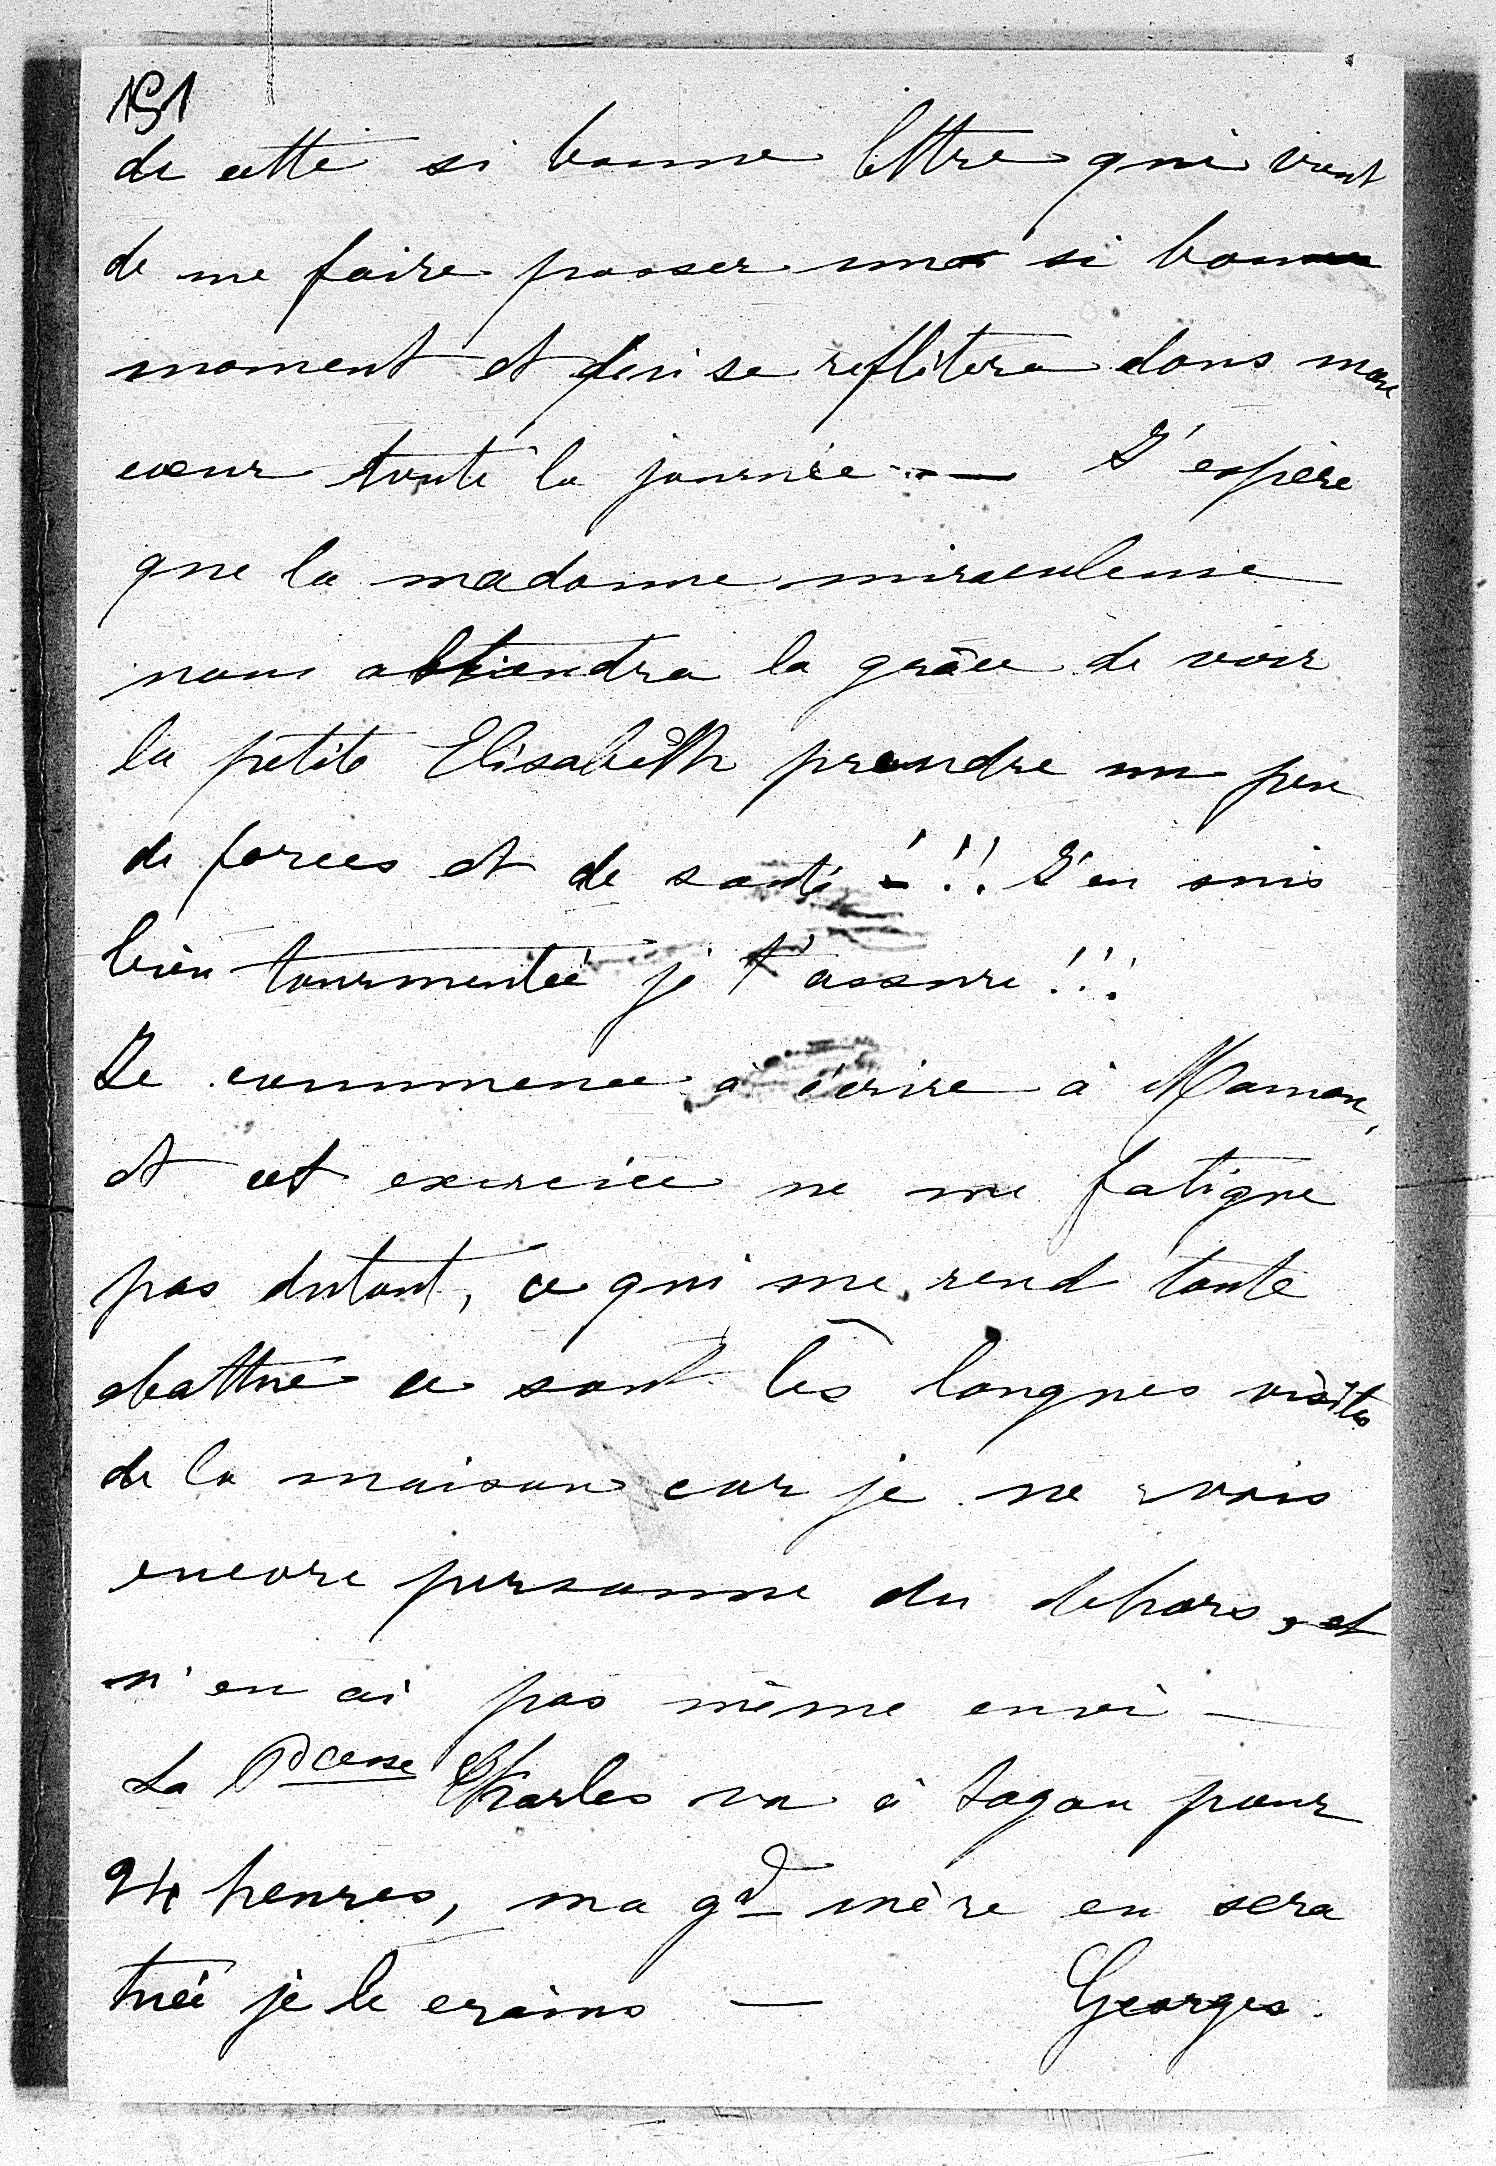 151
de cette si bonne lettre qui vient
de me faire passer un si bon
moment et qui se reflètera dans mon
cœur toute la journée — J'espère
que la madonne miraculeuse
nous obtiendra la grâce de voir
la petite Elisabeth prendre un peu
de forces et de santé !!! J'en suis
bien tourmentée je t'assure !!!
Je commence à écrire à Maman,
et cet exercice ne me fatigue
pas dutout, ce qui me rend toute
abattue ce sont les longues visites
de la maison car je ne vois
encore personne du dehors, et
n'en ai pas même envi —
La Pcesse Charles va à Sagan pour
24 heures, ma gd mère en sera
tuée je le crains — Georges.